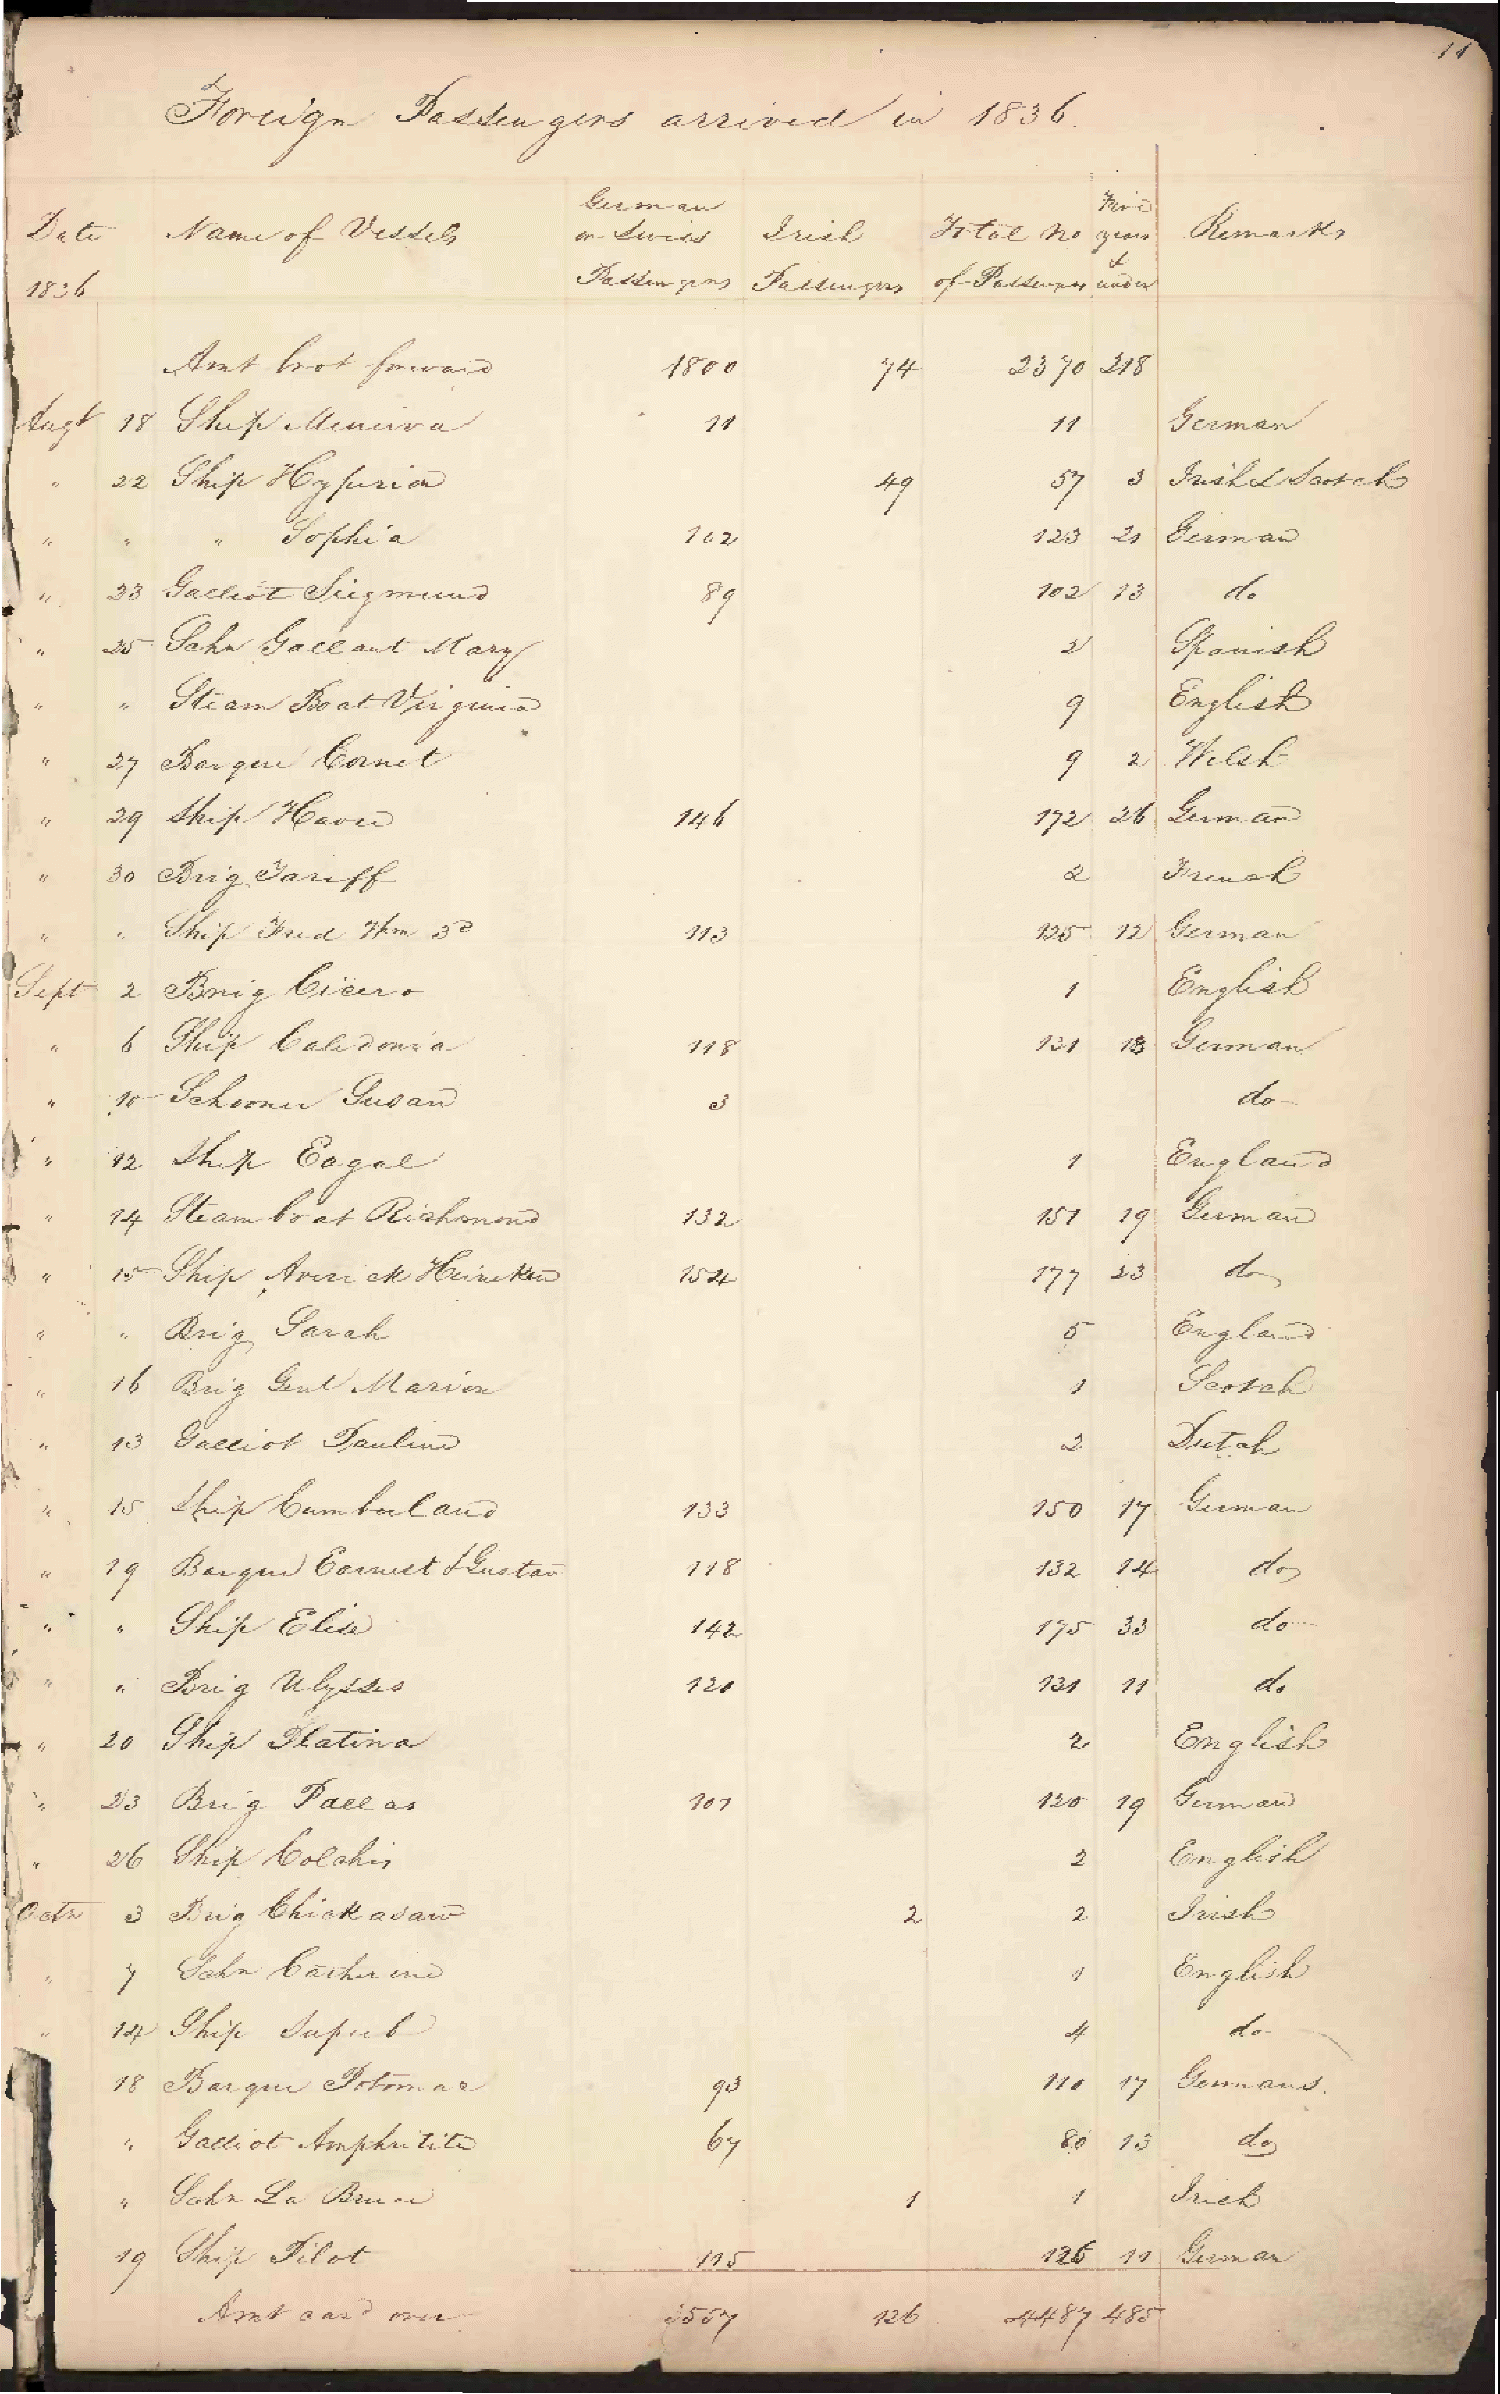 11
Foreign Passengers arrived in 1836.
Date 1836 Name of Vessels German or Swiss Passengers Irish Passengers Total No of Passengers Five years & under Remarks
Amt brot forward 1800 74 2370 218
Augt 18 Ship Minerva 11 11 German
" 22 Ship Hyperion 49 57 3 Irish & Scotch
" " " Sophia 102 123 21 German
" 23 Galliot Siegmund 89 102 13 do
" 25 Schr Gallant Mary 2 Spanish
" " Steam Boat Virginia 9 English
" 27 Barque Comet 9 2 Welsh
" 29 Ship Havre 146 172 26 German
" 30 Brig Tariff 2 French
" " Ship Fred Wm 3d 113 125 12 German
Sept 2 Brig Cicero 1 English
" 6 Ship Caledonia 118 131 13 German
" 10 Schooner Susan 3 do
" 12 Ship Eagal 1 England
" 14 Steam boat Richmond 132 151 19 German
" 15 Ship Averick Heineken 154 177 23 do
" " Brig Sarah 5 England
" 16 Brig Genl Marion 1 Scotch
" 13 Galliot Pauline 2 Dutch
" 15 Ship Cumberland 133 150 17 German
" 19 Barque Earnest & Gustav 118 132 14 do
" " Ship Elise 142 175 33 do
" " Brig Ulysses 120 131 11 do
" 20 Ship Platina 2 English
" 23 Brig Pallas 101 120 19 German
" 26 Ship Colchis 2 English
Octr 3 Brig Chickasaw 2 2 Irish
" 7 Schr Catherine 1 English
" 14 Ship Superb 4 do
18 Barque Potomac 93 110 17 Germans.
" Galliot Amphritite 67 80 13 do
" Schr La Bruce 1 1 Irish
19 Ship Pilot 115 126 11 German
Amt card over 3557 126 4487 485